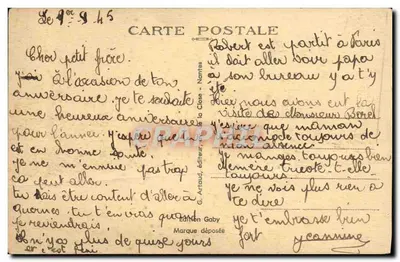 Le 1er 9 45
CARTE POSTALE
Cher petit frère
à l'occasion de ton
anniversaire je te souhaite
une heureux anniversaire
pour l'année. J'espère que tu
es en bonne santé
je ne m'ennuie pas trop
ça peut aller.
tu dois être content d'aller à
tu t'en vas quand
je reviendrai
On n'a plus de quinze jours
et c'est fini
G. Artaud, éditeur, la Close - Nantes
Edition Gaby
Marque déposée
Robert est partit à Paris
il doit aller voir papa
à son bureau y a t'y
été
Hier nous avons eut la
visite des Monsieur
j'espère que maman
toujours de
mon absence
je manges toujours bien
mémère tricote-t-elle
toujours
je ne vois plus rien a
te dire
je t'embrasse bien
fort Jeannine